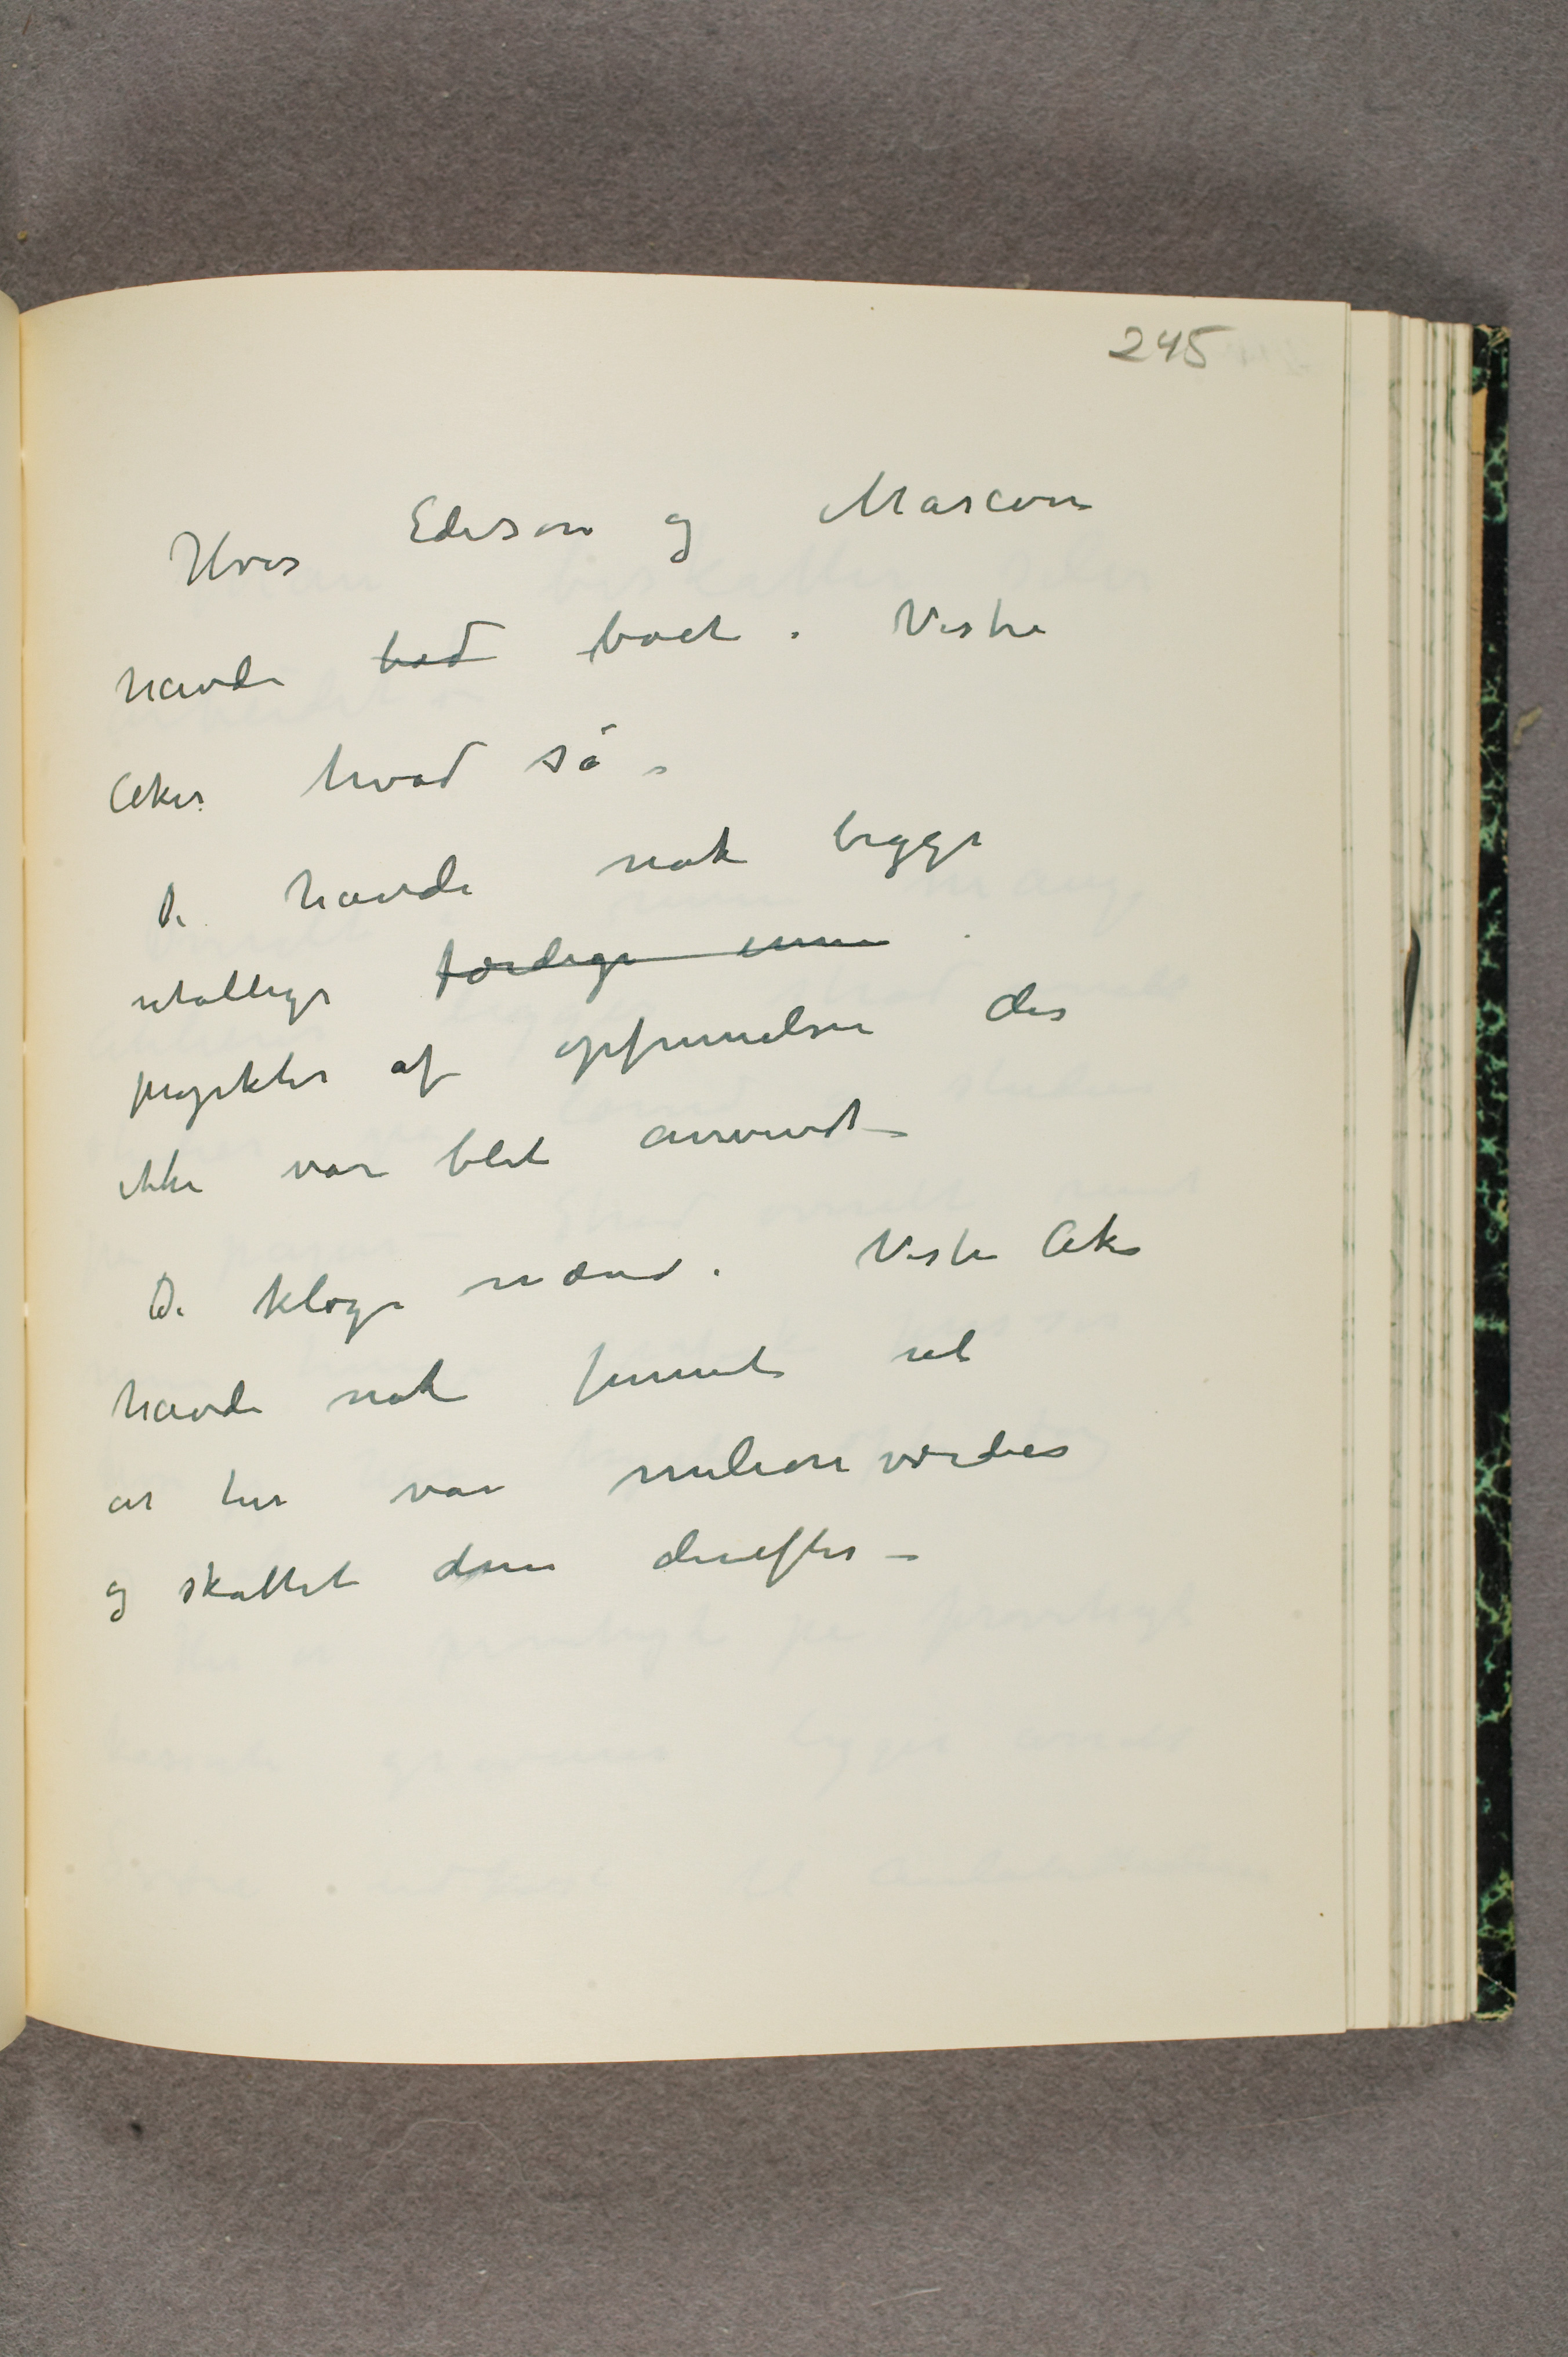 245
Hvis Edison og Marconi
havde bod boet i Vestre
Aker hvad så –
De havde nok begge
utallige færdige emne
projekter af opfinnelser der
ikke var blet anvendt –
De kloge mænd i Vestre Aker
havde nok funnet ut
at her var milionværdier
og skattet dem derefter –